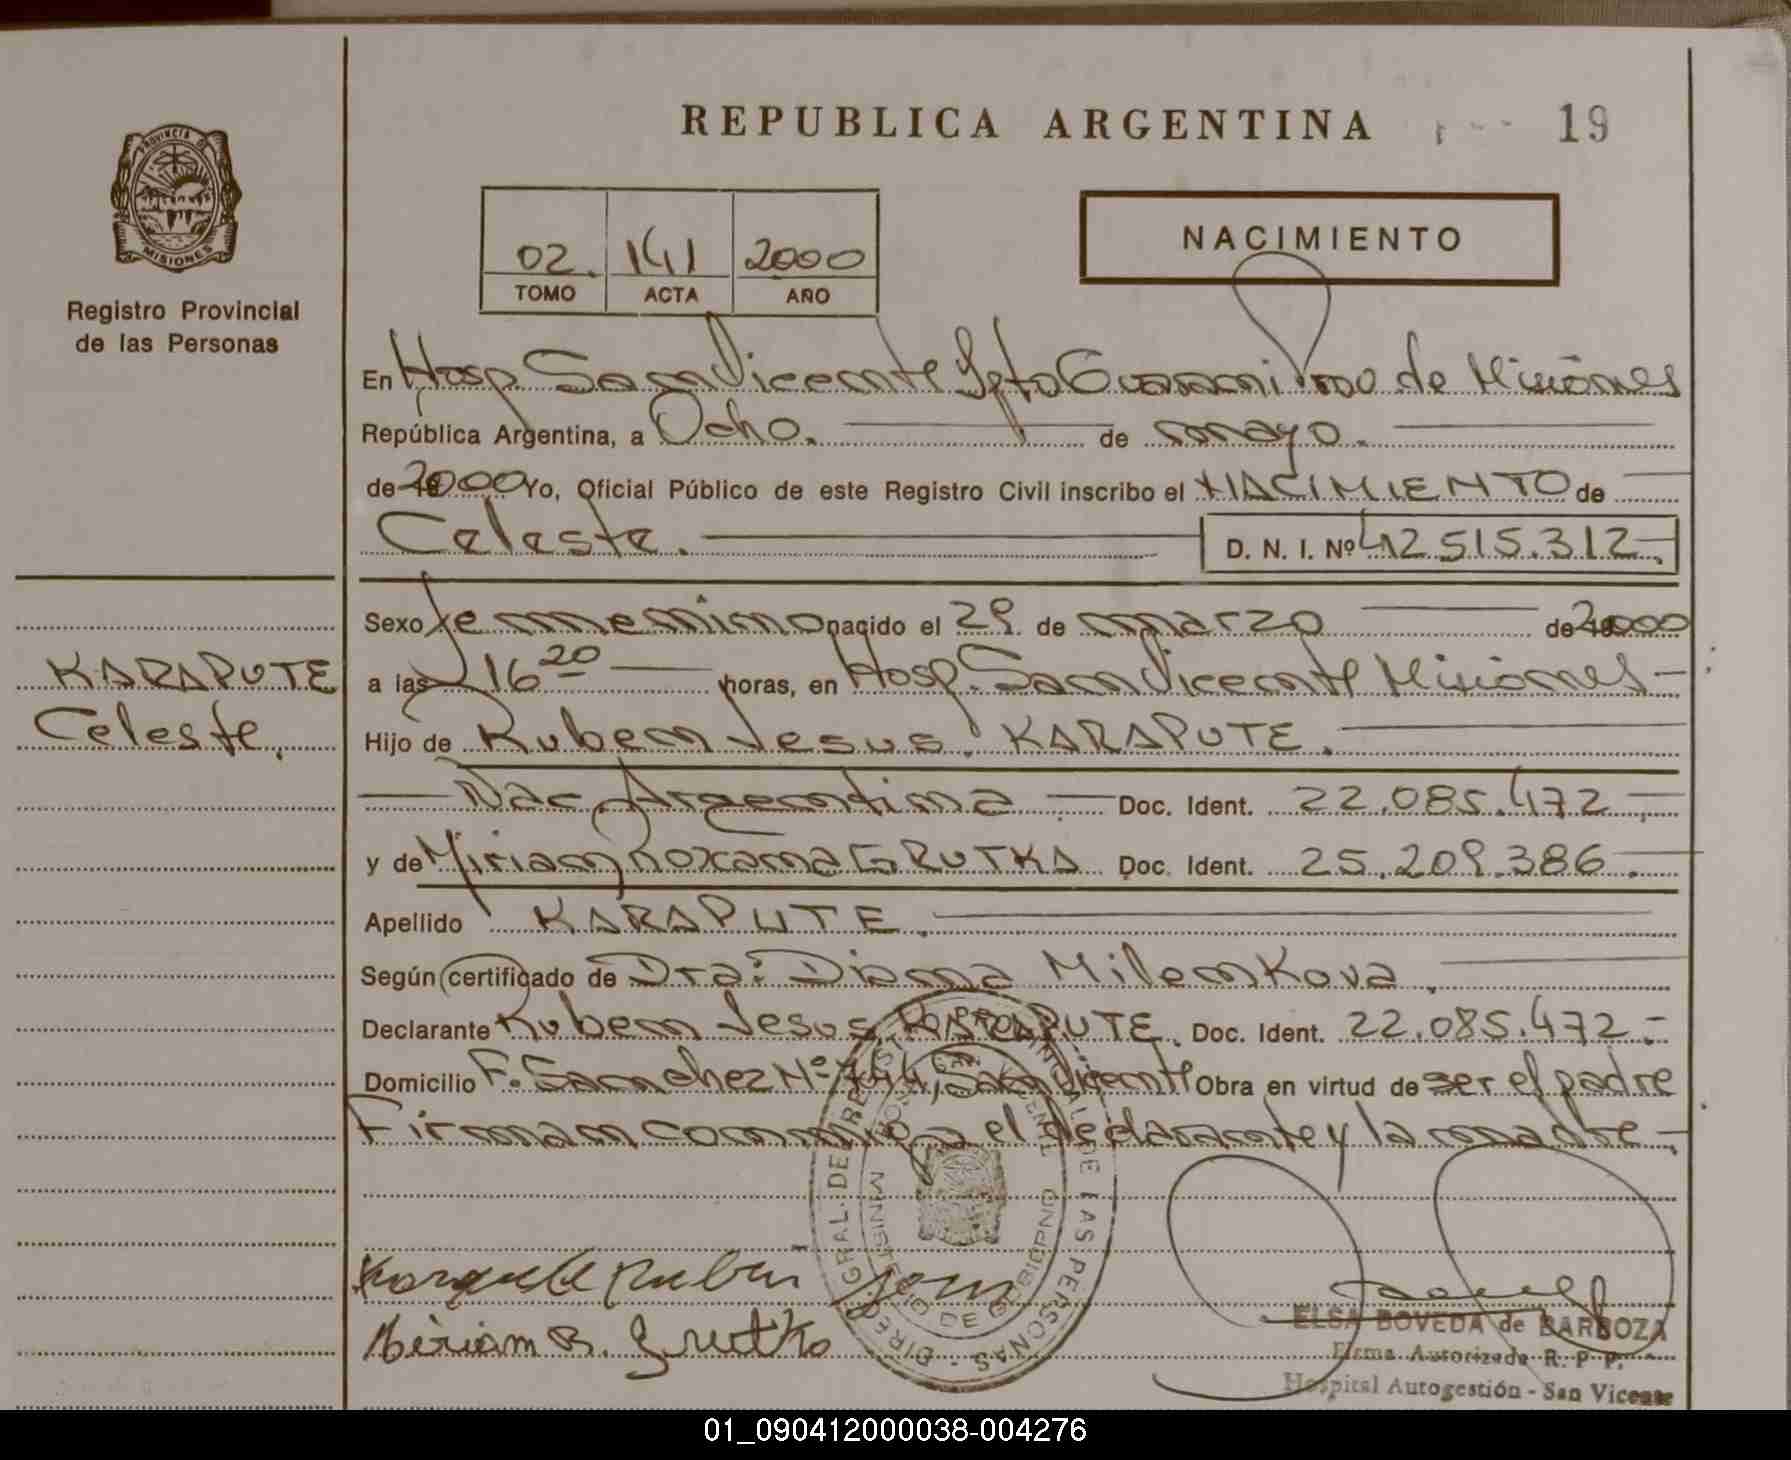 REPUBLICA ARGENTINA
19
PROVINCIA DE MISIONES
Registro Provincial
de las Personas
02. 141 2000
TOMO ACTA AÑO
NACIMIENTO
En Hosp. San Vicente Dpto Guarani Prov de Misiones
República Argentina, a Ocho. de mayo.
de 2000 Yo, Oficial Público de este Registro Civil inscribo el NACIMIENTO de
Celeste. D. N. I. Nº 42.515.312-
KARAPUTE
Celeste.
Sexo femenino nacido el 29. de marzo de 2000
a las 16 20 horas, en Hosp. San Vicente Misiones-
Hijo de Ruben Jesus. KARAPUTE.
Nac. Argentina Doc. Ident. 22.085.472-
y de Miriam Roxana GRUTKA Doc. Ident. 25.209.386.
Apellido KARAPUTE.
Según certificado de Dra: Diana Milenkova.
Declarante Ruben Jesus KARAPUTE. Doc. Ident. 22.085.472-
Domicilio F. Sanchez Nº 744, San Vicente Obra en virtud de ser el padre
Firman conmigo el declarante y la madre-
DIREC. GRAL. DEL REGISTRO PROVINCIAL DE LAS PERSONAS
MINISTERIO DE GOBIERNO
Ruben Jesus
Miriam R. Grutka
ELSA BOVEDA de BARBOZA
Firma Autorizada R. P. P.
Hospital Autogestión - San Vicente
01_090412000038-004276